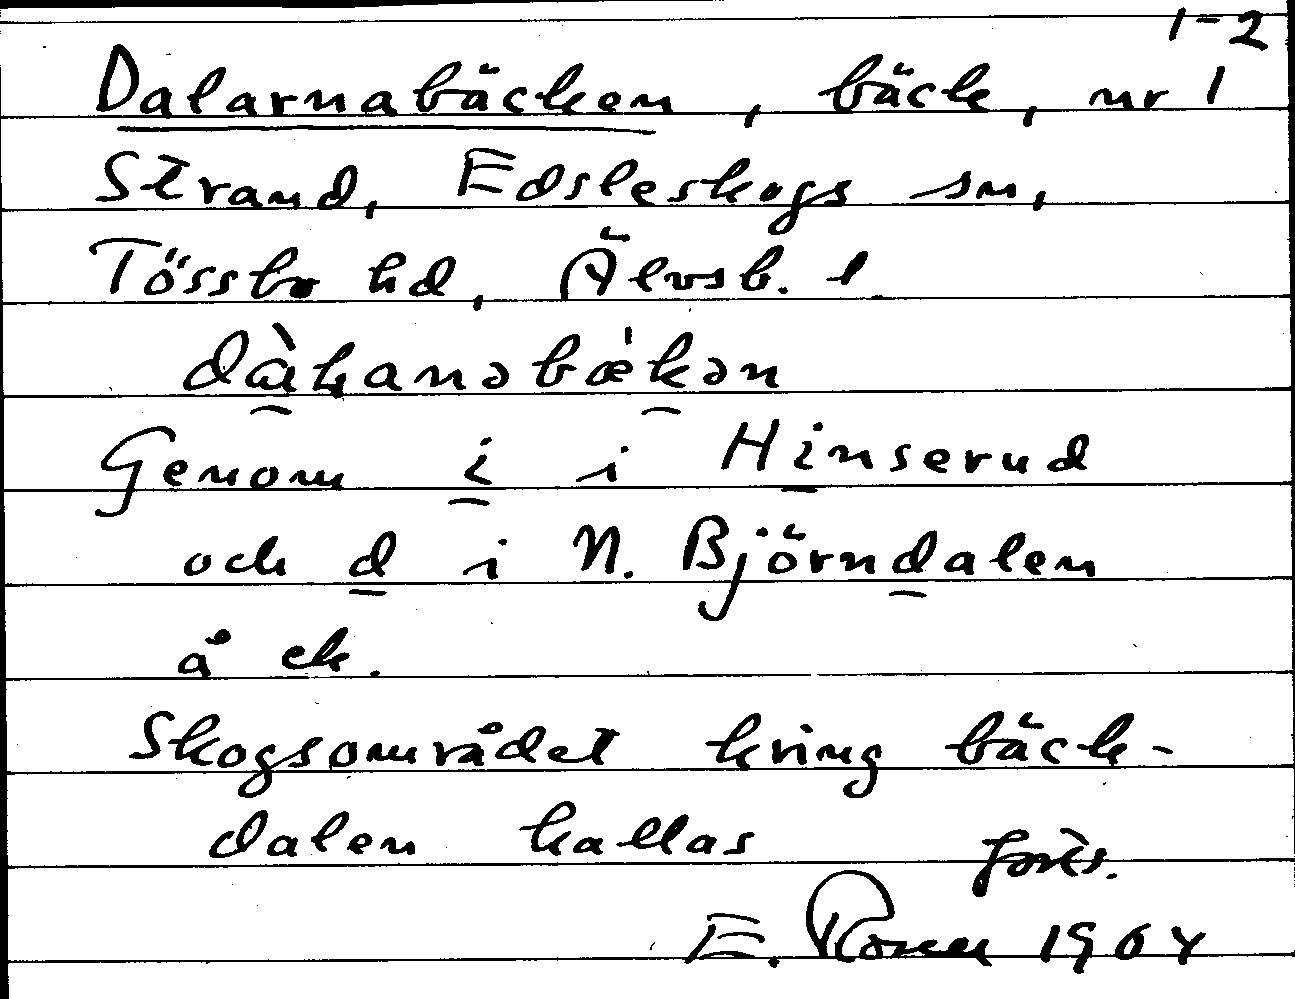 1-2
Dalarnabäcken, bäck, nr 1
Strand, Edsleskogs sn,
Tössbo hd, Älvsb. l
Genom i i Hinserud
och d i N. Björndalen
å ek.
Skogsområdet kring bäck-
dalen kallas forts.
E. Rosen 1904